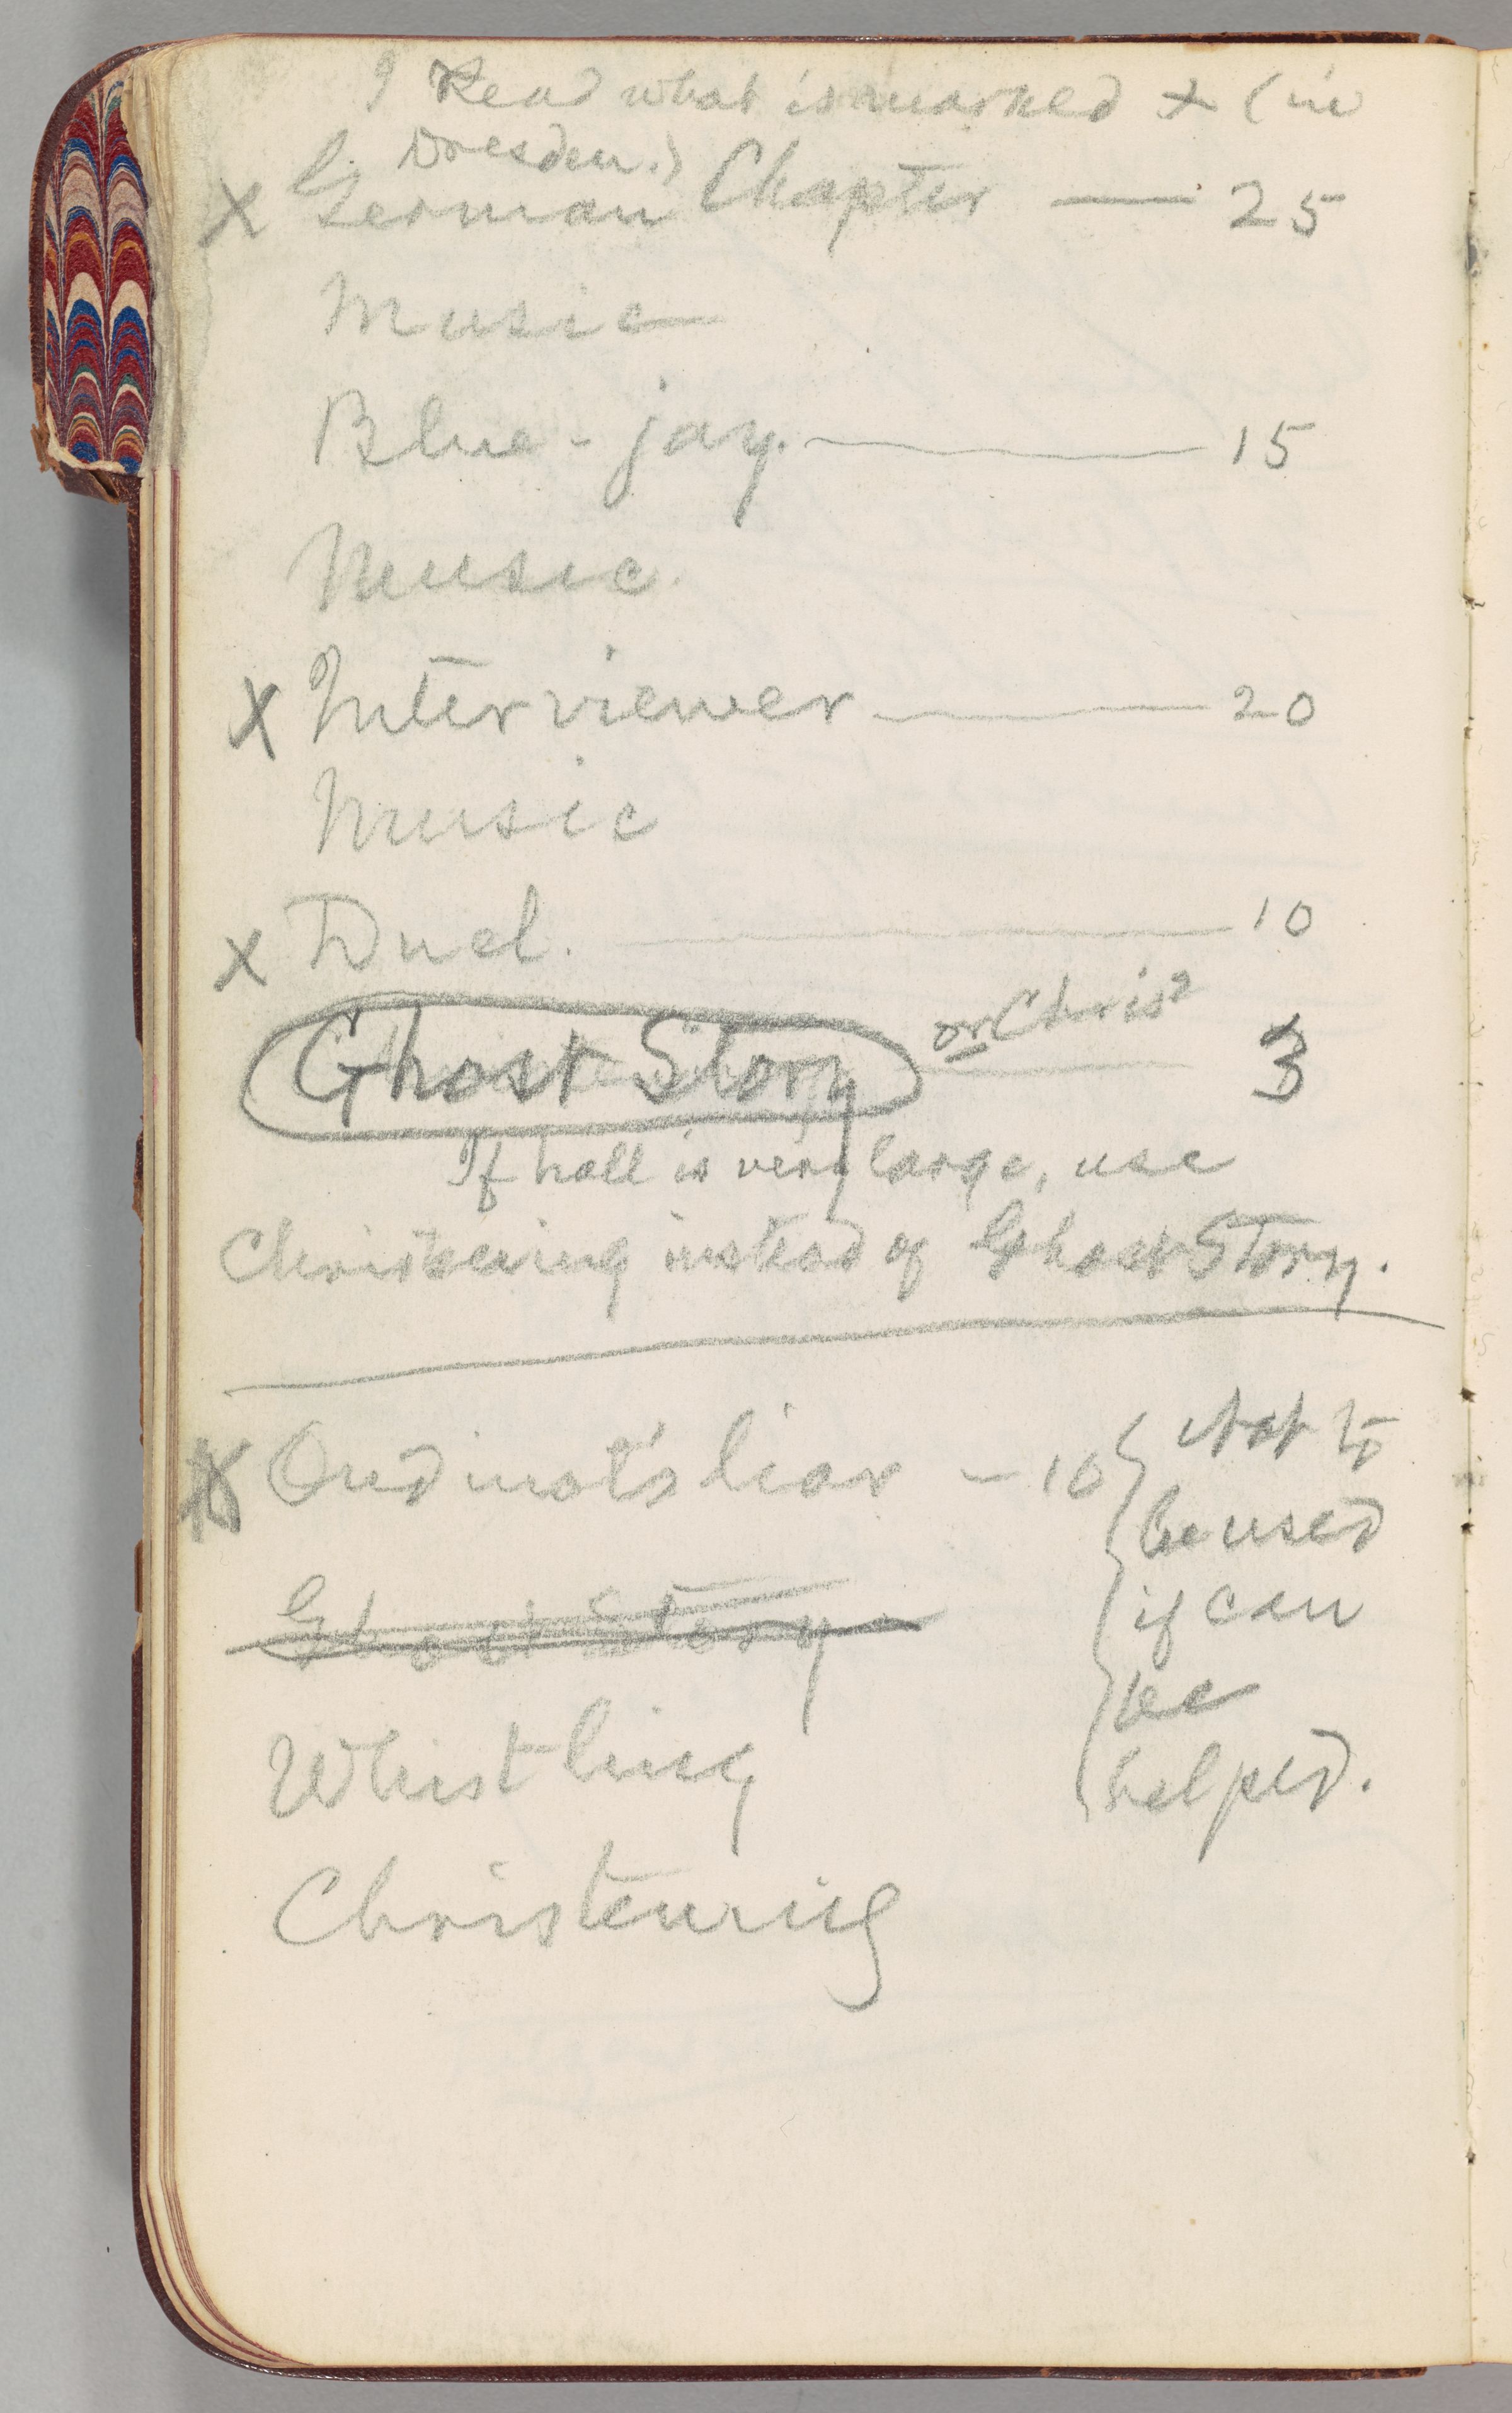 I Read what is marked + (in
Dresden.)
x German Chapter — 25
Music —
Blue-jay. — 15
Music.
x Interviewer — 20
Music
x Duel. — 10
Ghost Story or Chris² 3
If hall is very large, use
Christening instead of Ghost Story.
x Oudinot's liar — 10 } Not to
be used
Ghost Story
if can
be
Whistling
helped.
Christening